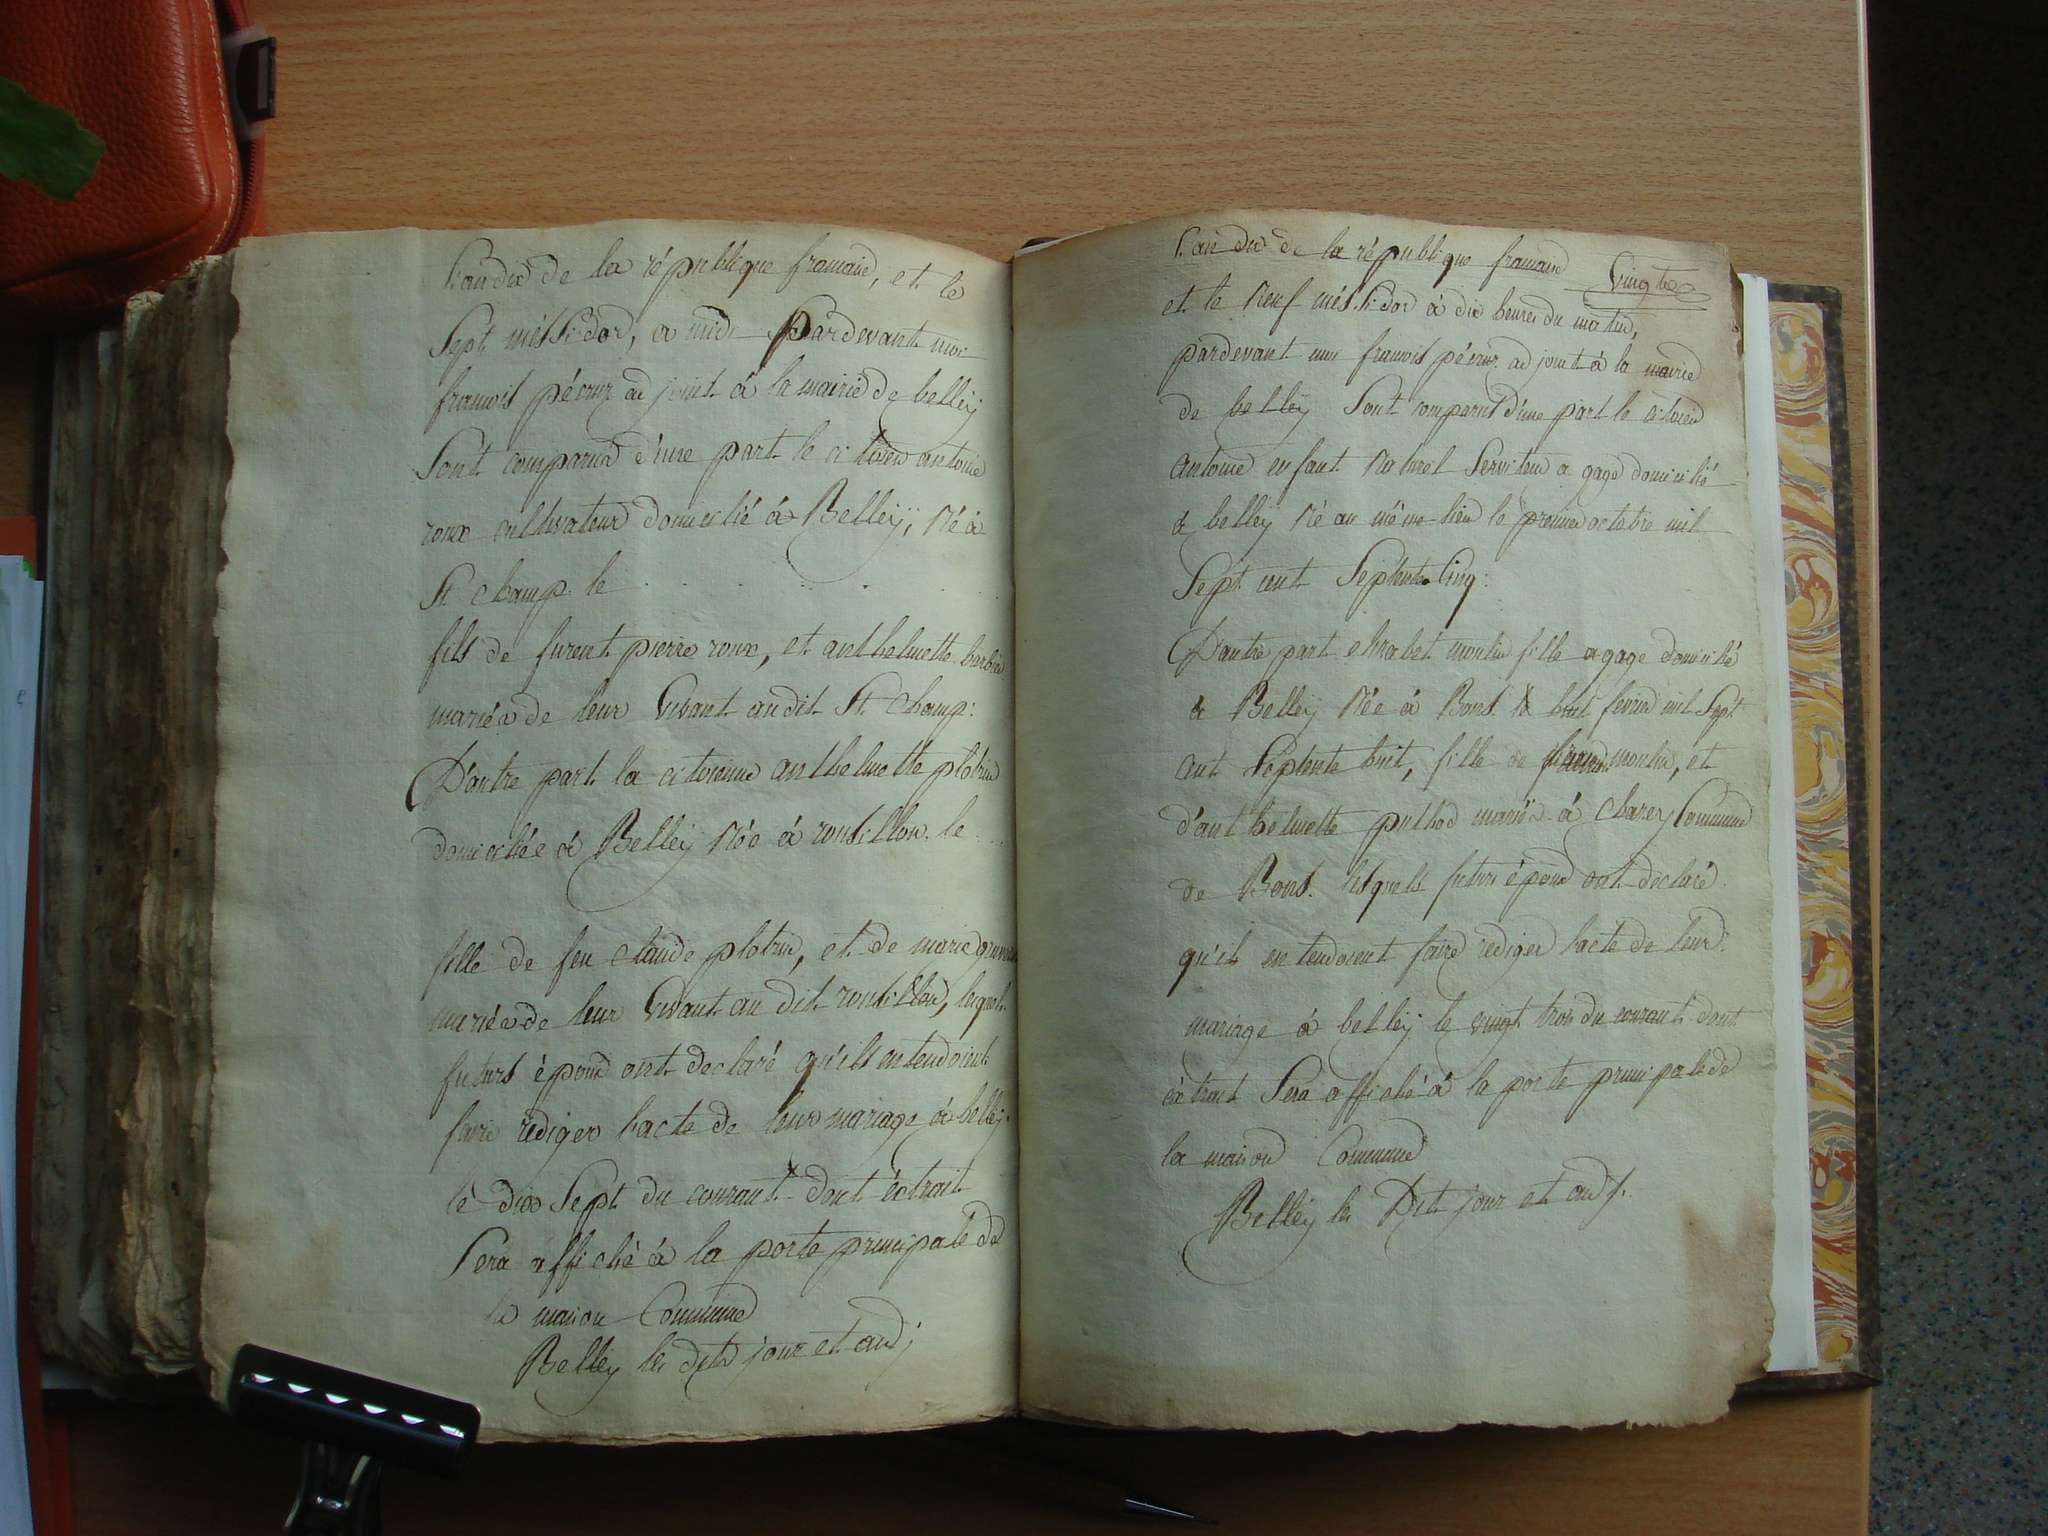 l'an dix de la république francaise, et le
Sept méssidor, a midi Pardevant moi
francois pécruz adjoint à la mairie de belleÿ
Sont comparus d'une part le citoien antoine
roux cultivateur domicilié à Belleÿ, Né à
St champ le
fils de furent pierre roux, et anthelmette barbier
mariés de leur vivant audit St champ:
D'autre part la citoienne anthelmette plotru
domiciliée à Belleÿ Née à rousillon le
fille de feu claude plotru, et de marie
mariés de leur vivant au dit rousillon, lesquels
futurs époux ont declaré qu'ils entendoient
faire rediger lacte de leur mariage à belleÿ
le dix Sept du courant dont éxtrait
Sera affiché à la porte principale de
la maison Commune
Belleÿ les dits jour et an
l'an dix de la république francaise vingt
et le Neuf méssidor à dix heures du matin,
pardevant moi francois pécruz adjoint à la mairie
de belleÿ Sont comparus d'une part le citoien
antoine enfant Naturel Serviteur a gage domicilié
à belleÿ Né au même lieu le premier octobre mil
Sept cent Septente Cinq:
D'autre part elizabet moulin fille a gage domicilié
à Belleÿ Née à Bons le huit fevrier mil Sept
cent Septente huit, fille de moulin, et
d'anthelmette puthod mariés à charey Commune
de Bons. lesquels futurs époux ont declaré
qu'ils entendoient faire rediger lacte de leur
mariage à belleÿ le vingt trois du courant dont
éxtrait Sera affiché à la porte principale de
la maison Commune
Belleÿ les Dits jour et an